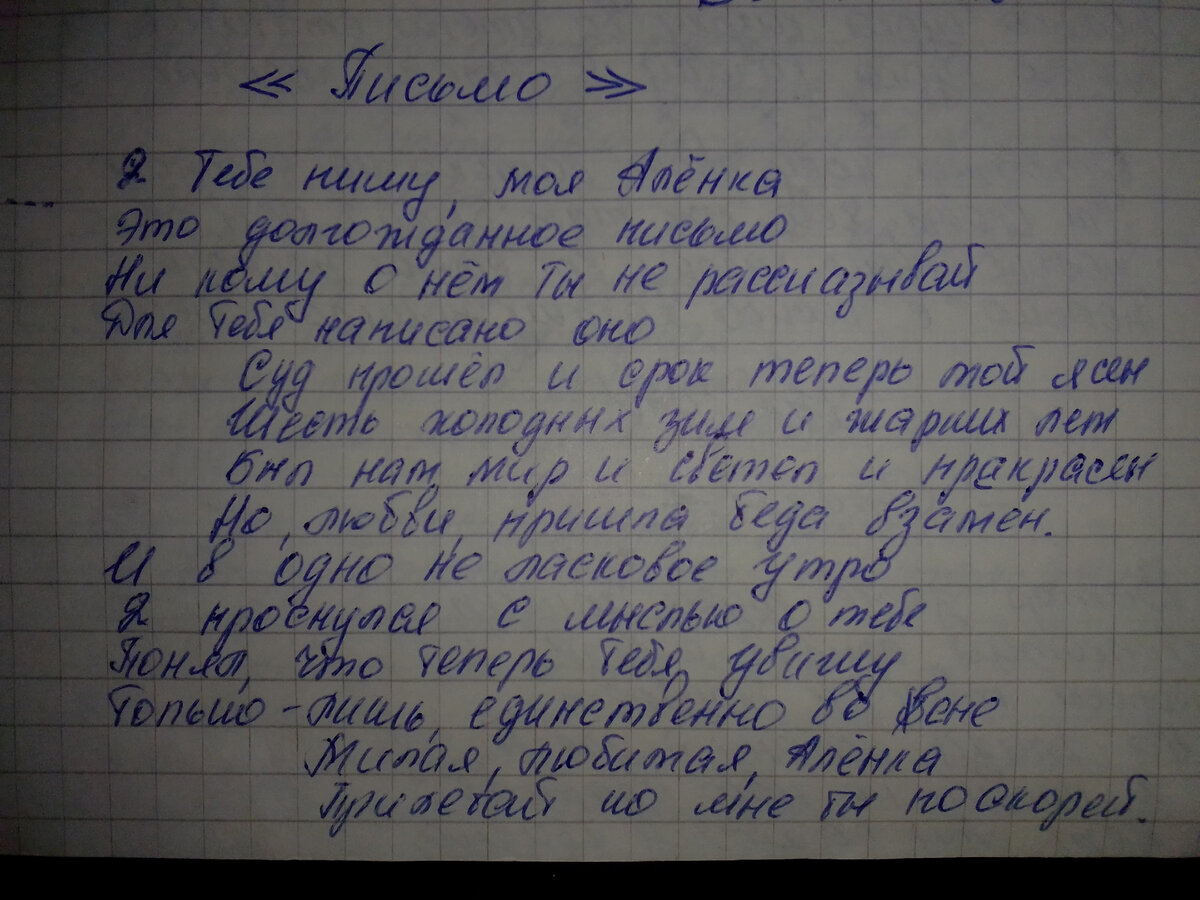 « Письмо »
Я Тебе пишу, моя Алёнка
Это долгожданное письмо
Ни кому о нём ты не рассказывай
Для Тебя написано оно
Суд прошёл и срок теперь мой ясен
Шесть холодных зим и жарких лет
Был наш мир и светел и пракрасен
Но, любви, пришла беда взамен.
И в одно не ласковое утро
Я проснулся с мыслью о тебе
Понял, что теперь Тебя, увижу
Только - лишь, единственно во сне
Милая, любимая, Алёнка
Приезжай ко мне ты поскорей.